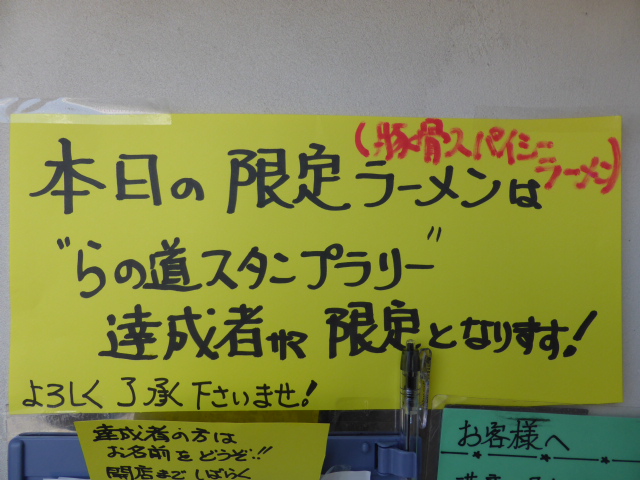 本日の限定ラーメンは
(豚骨スパイシーラーメン)
"らの道スタンプラリー"
達成者様限定となります!
よろしく了承下さいませ!
達成者の方は
お名前をどうぞ!!
開店までしばらく
お客様へ